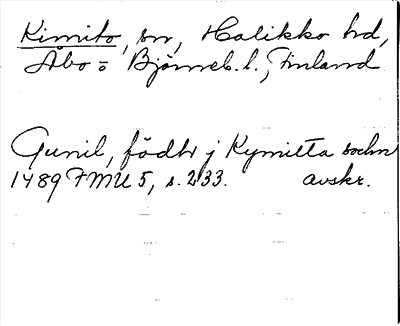 Kimito, sn, Halikko hd,
Åbo o Björneb. l., Finland
Gunil, födh j Kymitta sochn
1489 FMU 5, s. 233. avskr.